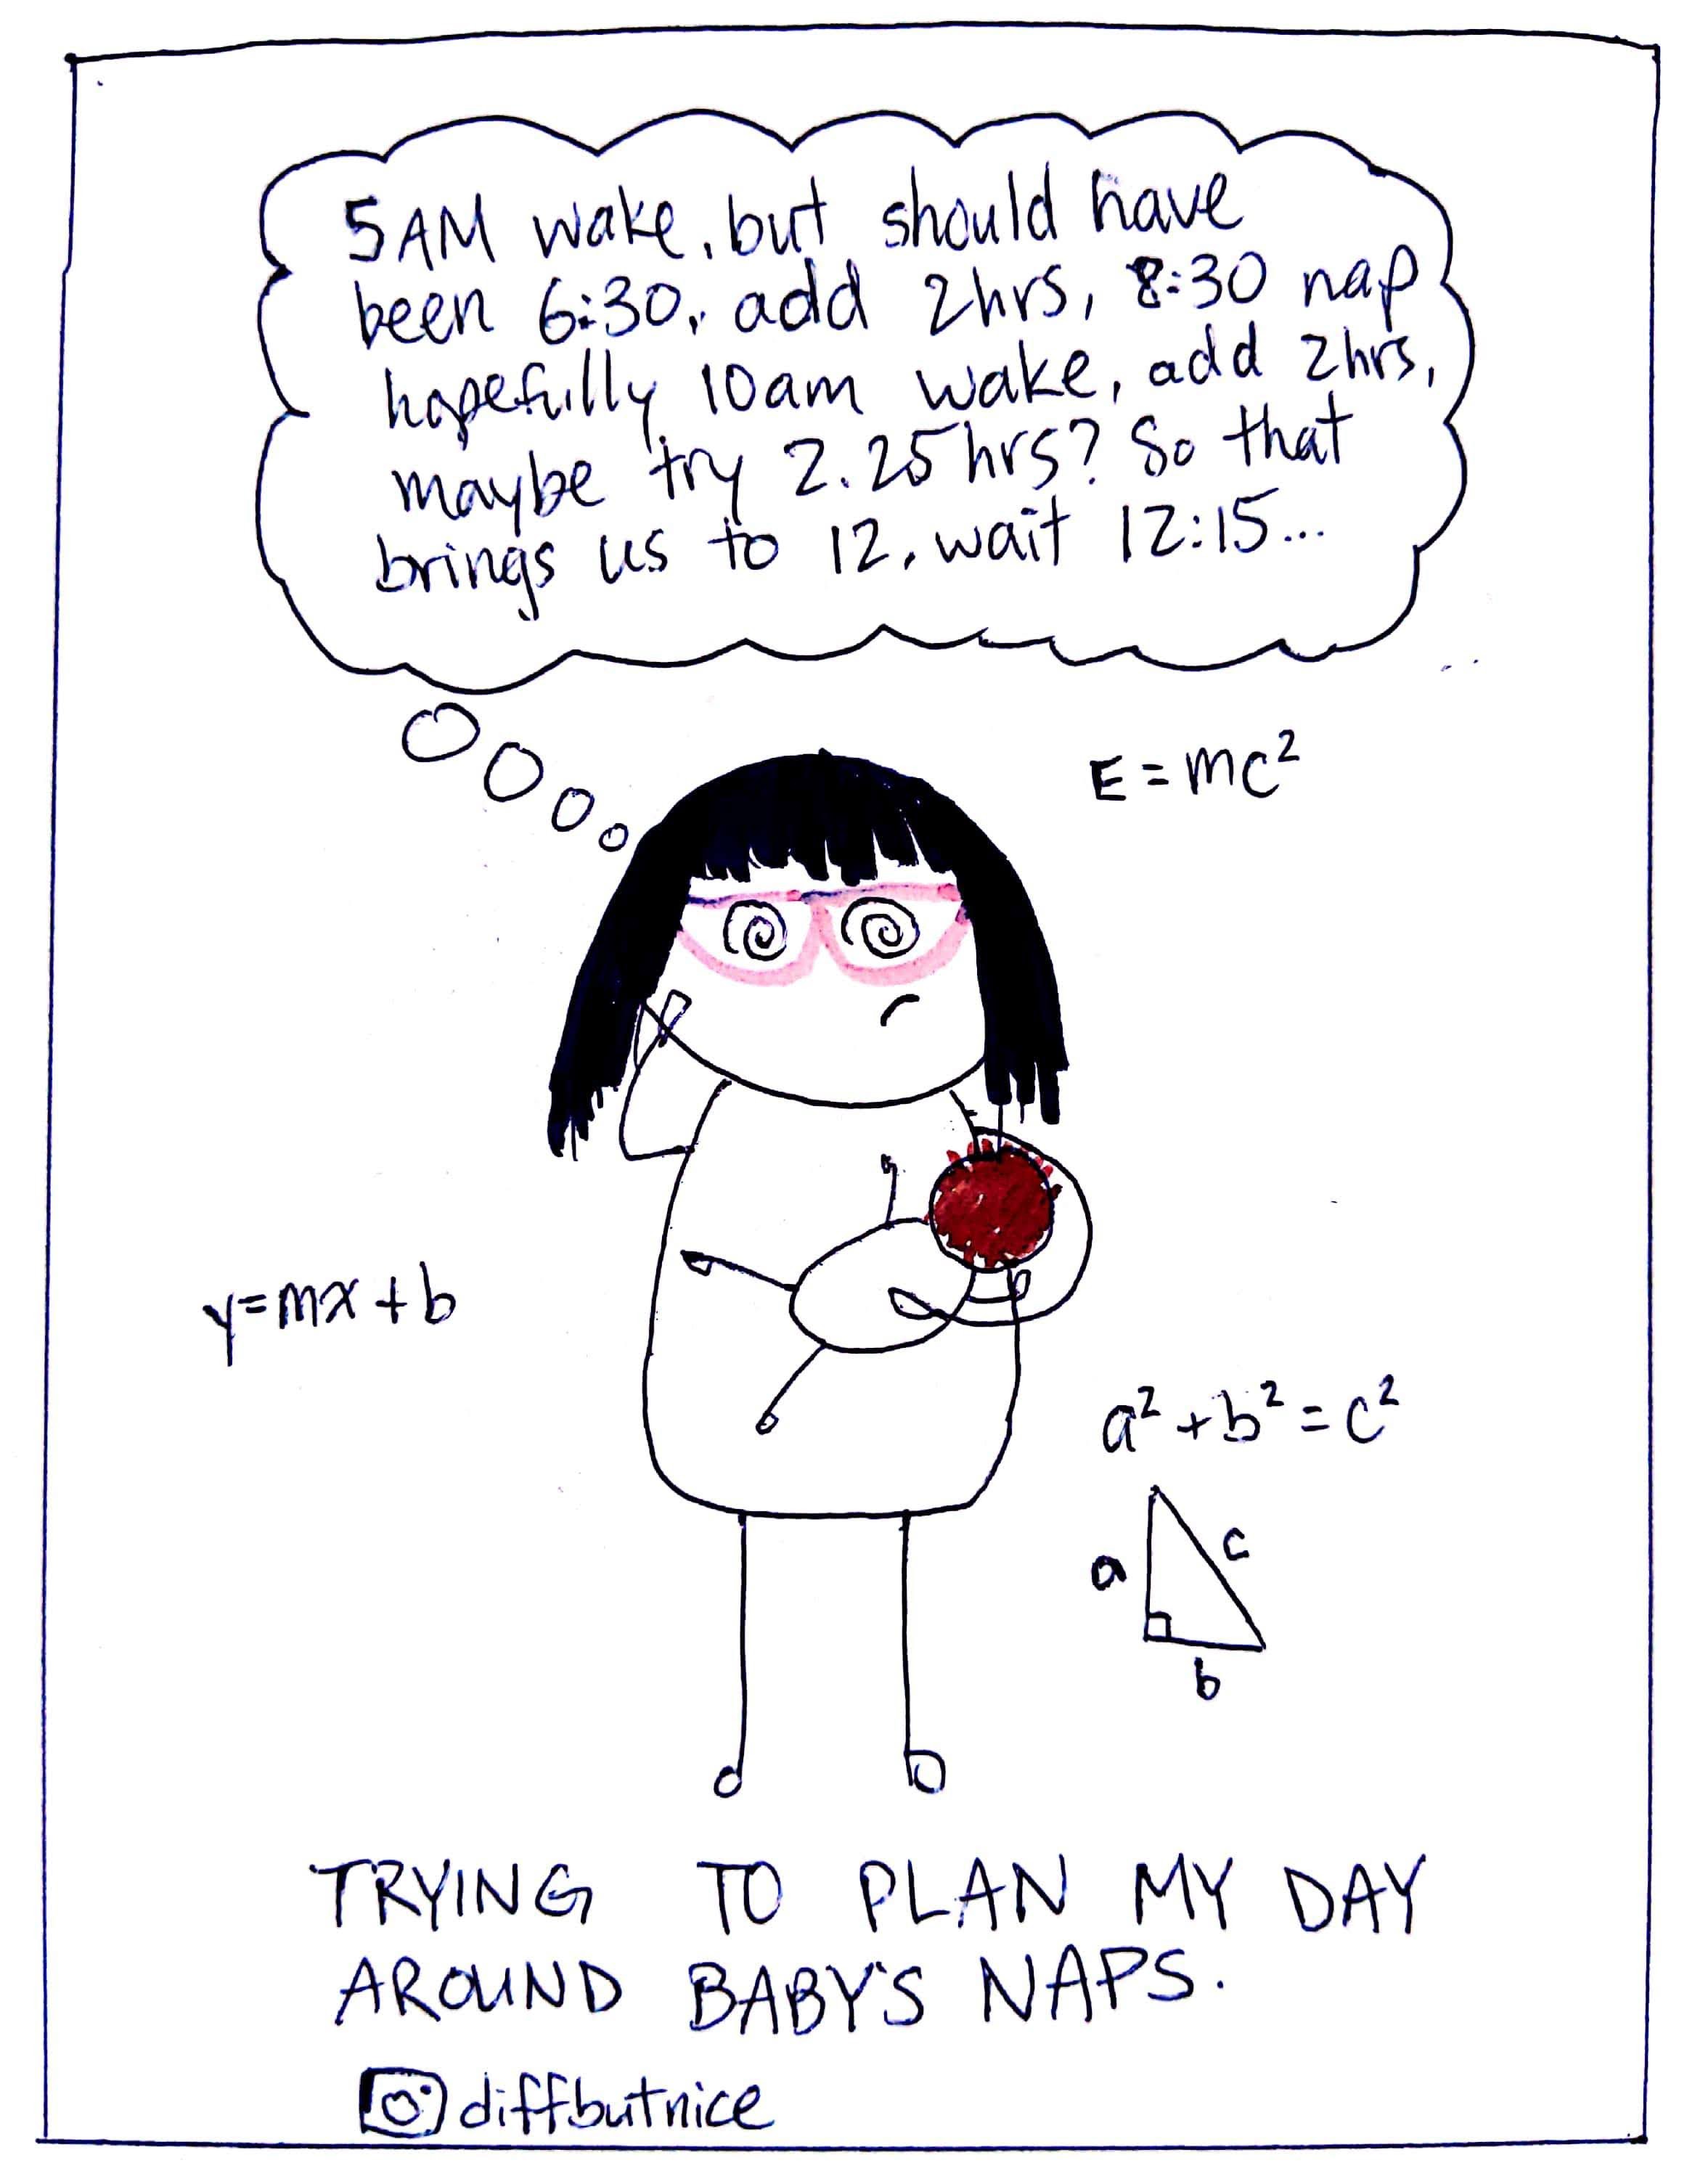 5AM wake, but should have
been 6:30, add 2hrs, 8:30 nap
hopefully 10am wake, add 2hrs,
maybe try 2.25hrs? So that
brings us to 12, wait 12:15...
E = mc²
y=mx+b
a²+b²=c²
a
c
b
TRYING TO PLAN MY DAY
AROUND BABY'S NAPS.
diffbutnice